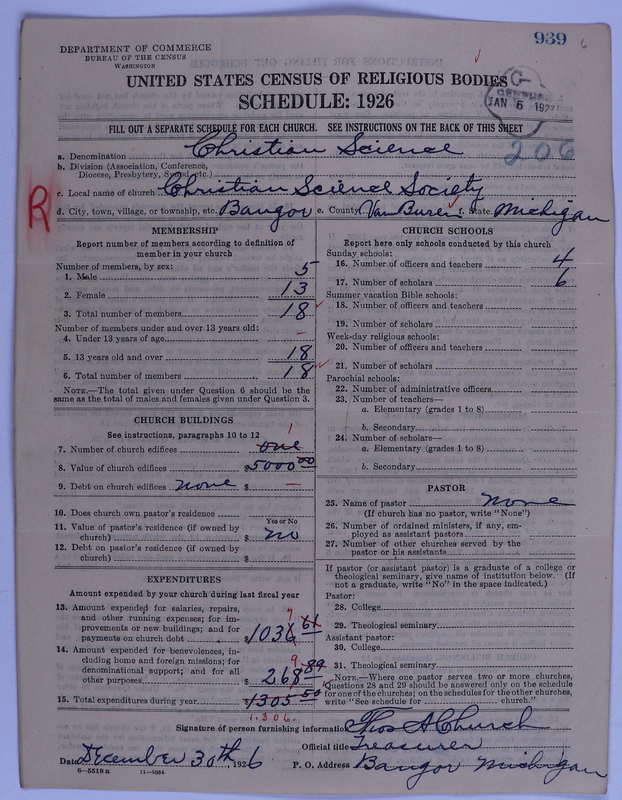 939
DEPARTMENT OF COMMERCE
BUREAU OF THE CENSUS
WASHINGTON
UNITED STATES CENSUS OF RELIGIOUS BODIES
SCHEDULE: 1926
CENSUS
JAN 5 1927
FILL OUT A SEPARATE SCHEDULE FOR EACH CHURCH. SEE INSTRUCTIONS ON THE BACK OF THIS SHEET
206
a. Denomination Christian Science
b. Division (Association, Conference,
Diocese, Presbytery, Synod, etc.)
c. Local name of church Christian Science Society
R
d. City, town, village, or township, etc. Bangor e. County Van Buren f. State Michigan
MEMBERSHIP
Report number of members according to definition of
member in your church
Number of members, by sex:
1. Male 5
2. Female 13
3. Total number of members 18
Number of members under and over 13 years old:
4. Under 13 years of age –
5. 13 years old and over 18
6. Total number of members 18
NOTE.—The total given under Question 6 should be the
same as the total of males and females given under Question 3.
CHURCH BUILDINGS
See instructions, paragraphs 10 to 12
1
7. Number of church edifices one
8. Value of church edifices $5000 00
9. Debt on church edifices none $ –
10. Does church own pastor's residence
Yes or No
11. Value of pastor's residence (if owned by
church) $ no
12. Debt on pastor's residence (if owned by
church) $
EXPENDITURES
Amount expended by your church during last fiscal year
13. Amount expended for salaries, repairs,
and other running expenses; for im-
provements or new buildings; and for
payments on church debt $1036 61
7
14. Amount expended for benevolences, in-
cluding home and foreign missions; for
denominational support; and for all
other purposes $ 268 89
9
15. Total expenditures during year $1305 50
1.306.
CHURCH SCHOOLS
Report here only schools conducted by this church
Sunday schools:
16. Number of officers and teachers 4
17. Number of scholars 6
Summer vacation Bible schools:
18. Number of officers and teachers
19. Number of scholars
Week-day religious schools:
20. Number of officers and teachers
21. Number of scholars
Parochial schools:
22. Number of administrative officers
23. Number of teachers—
a. Elementary (grades 1 to 8)
b. Secondary
24. Number of scholars—
a. Elementary (grades 1 to 8)
b. Secondary
PASTOR
25. Name of pastor None
(If church has no pastor, write "None")
26. Number of ordained ministers, if any, em-
ployed as assistant pastors
27. Number of other churches served by the
pastor or his assistants
If pastor (or assistant pastor) is a graduate of a college or
theological seminary, give name of institution below. (If
not a graduate, write "No" in the space indicated.)
Pastor:
28. College
29. Theological seminary
Assistant pastor:
30. College
31. Theological seminary
NOTE.—Where one pastor serves two or more churches,
Questions 28 and 29 should be answered only on the schedule
for one of the churches; on the schedules for the other churches,
write "See schedule for church."
Signature of person furnishing information Thos A Church
Official title Treasurer
Date December 30th, 1926
P. O. Address Bangor Michigan
8—5518 a 11—9054